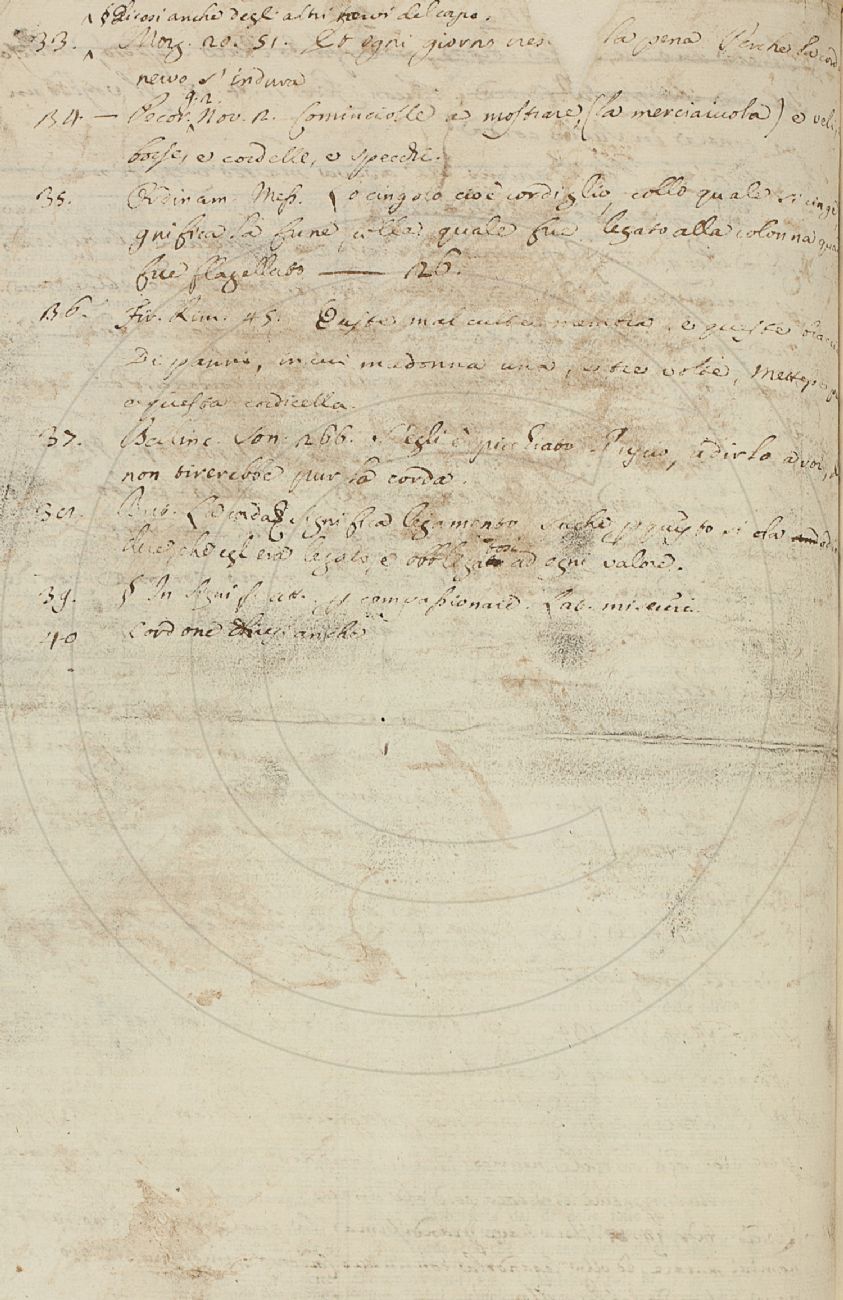 § Dicesi anche degli altri nervi del capo.
33. Morg. 20. 51. Et ogni giorno la pena Perche la cord
nervo s'indura
134 — Pecor. g. 2. Nov. 2. Cominciolle a mostrare, (la merciaiuola) e veli,
borse, e cordelle, e specchi.
35. Ordinam. Mess. Lo cingolo cioè cordiglio, collo quale si cinge
gnifica la fune, colla quale fue legato alla colonna qua
fue flagellato —— 126.
136. Fir. Rim. 45. membra, e queste
Di panni, in cui madonna una, o tre volte,
a questa cordicella.
37. Bellinc. Son. 266. S'egli è picchiato Pisano, a dirlo a voi,
non tirerebbe pur la corda.
But. La corda significa legamento, anche questo si dà
tere che egli era legato, e obbligato ad ogni valore.
39. § In signific. att. compassionare. Lat. misereri.
40 Cordone anche